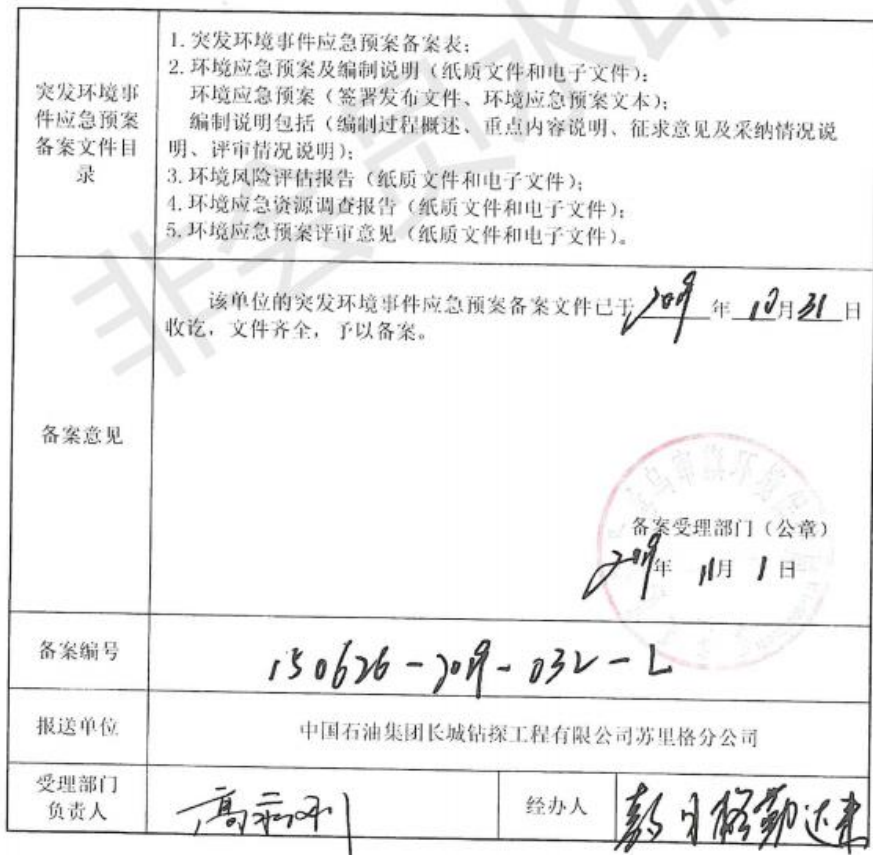 突发环境事
件应急预案
备案文件目
录
1. 突发环境事件应急预案备案表;
2. 环境应急预案及编制说明（纸质文件和电子文件）;
环境应急预案（签署发布文件、环境应急预案文本）;
编制说明包括（编制过程概述、重点内容说明、征求意见及采纳情况说
明、评审情况说明）;
3. 环境风险评估报告（纸质文件和电子文件）;
4. 环境应急资源调查报告（纸质文件和电子文件）;
5. 环境应急预案评审意见（纸质文件和电子文件）。
备案意见
该单位的突发环境事件应急预案备案文件已于 2019 年 10 月 31 日
收讫，文件齐全，予以备案。
备案受理部门（公章）
2019 年 11 月 1 日
备案编号
150626-2019-032-L
报送单位
中国石油集团长城钻探工程有限公司苏里格分公司
受理部门
负责人
经办人